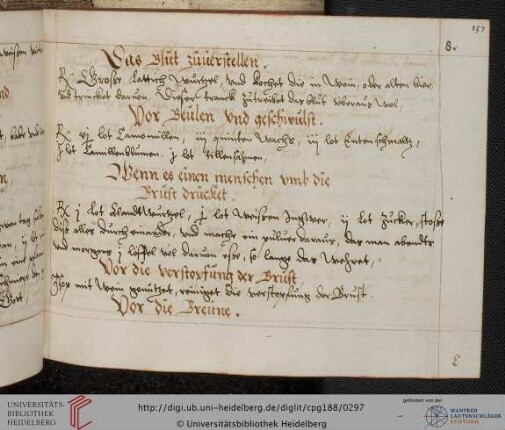 157
8.
Das Blut zuuerstellen.
℞ Grosse Lattich Wurtzel, vnd kochet die in Wein, oder alten bier,
vnd trincket daruon. Dieser tranck zutreibet das blut vberaus wol,
Vor Beulen vnd geschwulst.
℞ vj lot Camomillen, iij quinten Wachs, iij lot Entenschmaltz,
j lot Camillenblumen, j lot
Wenn es einen menschen vmb die
Brust drücket.
℞ j lot Alandtwurtzel, j lot Weissen Ingwer, ij lot Zucker, stosse
dis alles durch einander, vnd mache ein puluer daraus, das man abendts
vnd morgens j löffel vol daruon esse, so lange das wehret,
Vor die verstopfung der Brust
mit Wein genützet, reiniget die verstopfung der Brust.
Vor die Breune.
UNIVERSITÄTS-
BIBLIOTHEK
HEIDELBERG
http://digi.ub.uni-heidelberg.de/diglit/cpg188/0297
© Universitätsbibliothek Heidelberg
gefördert von der
MANFRED
LAUTENSCHLÄGER
STIFTUNG